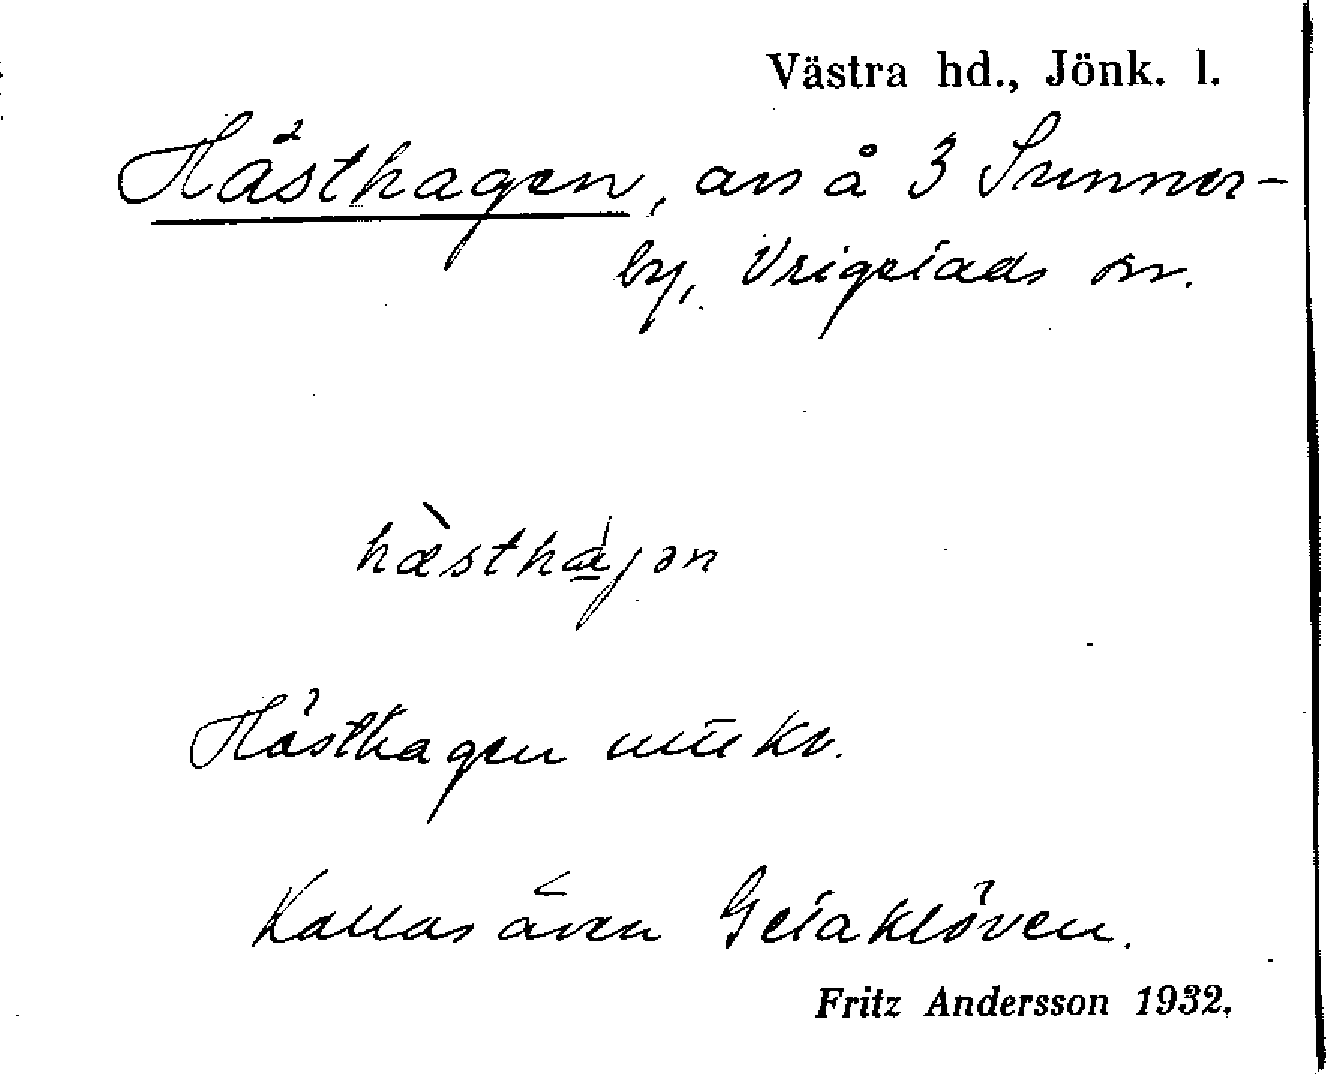 Västra hd., Jönk. l.
Hästhagen, avs å 3 Sunner-
by, Vrigstads sn.
hæsthajən
Hästhagen mtlkv.
Kallas även Getaklöven.
Fritz Andersson 1932.